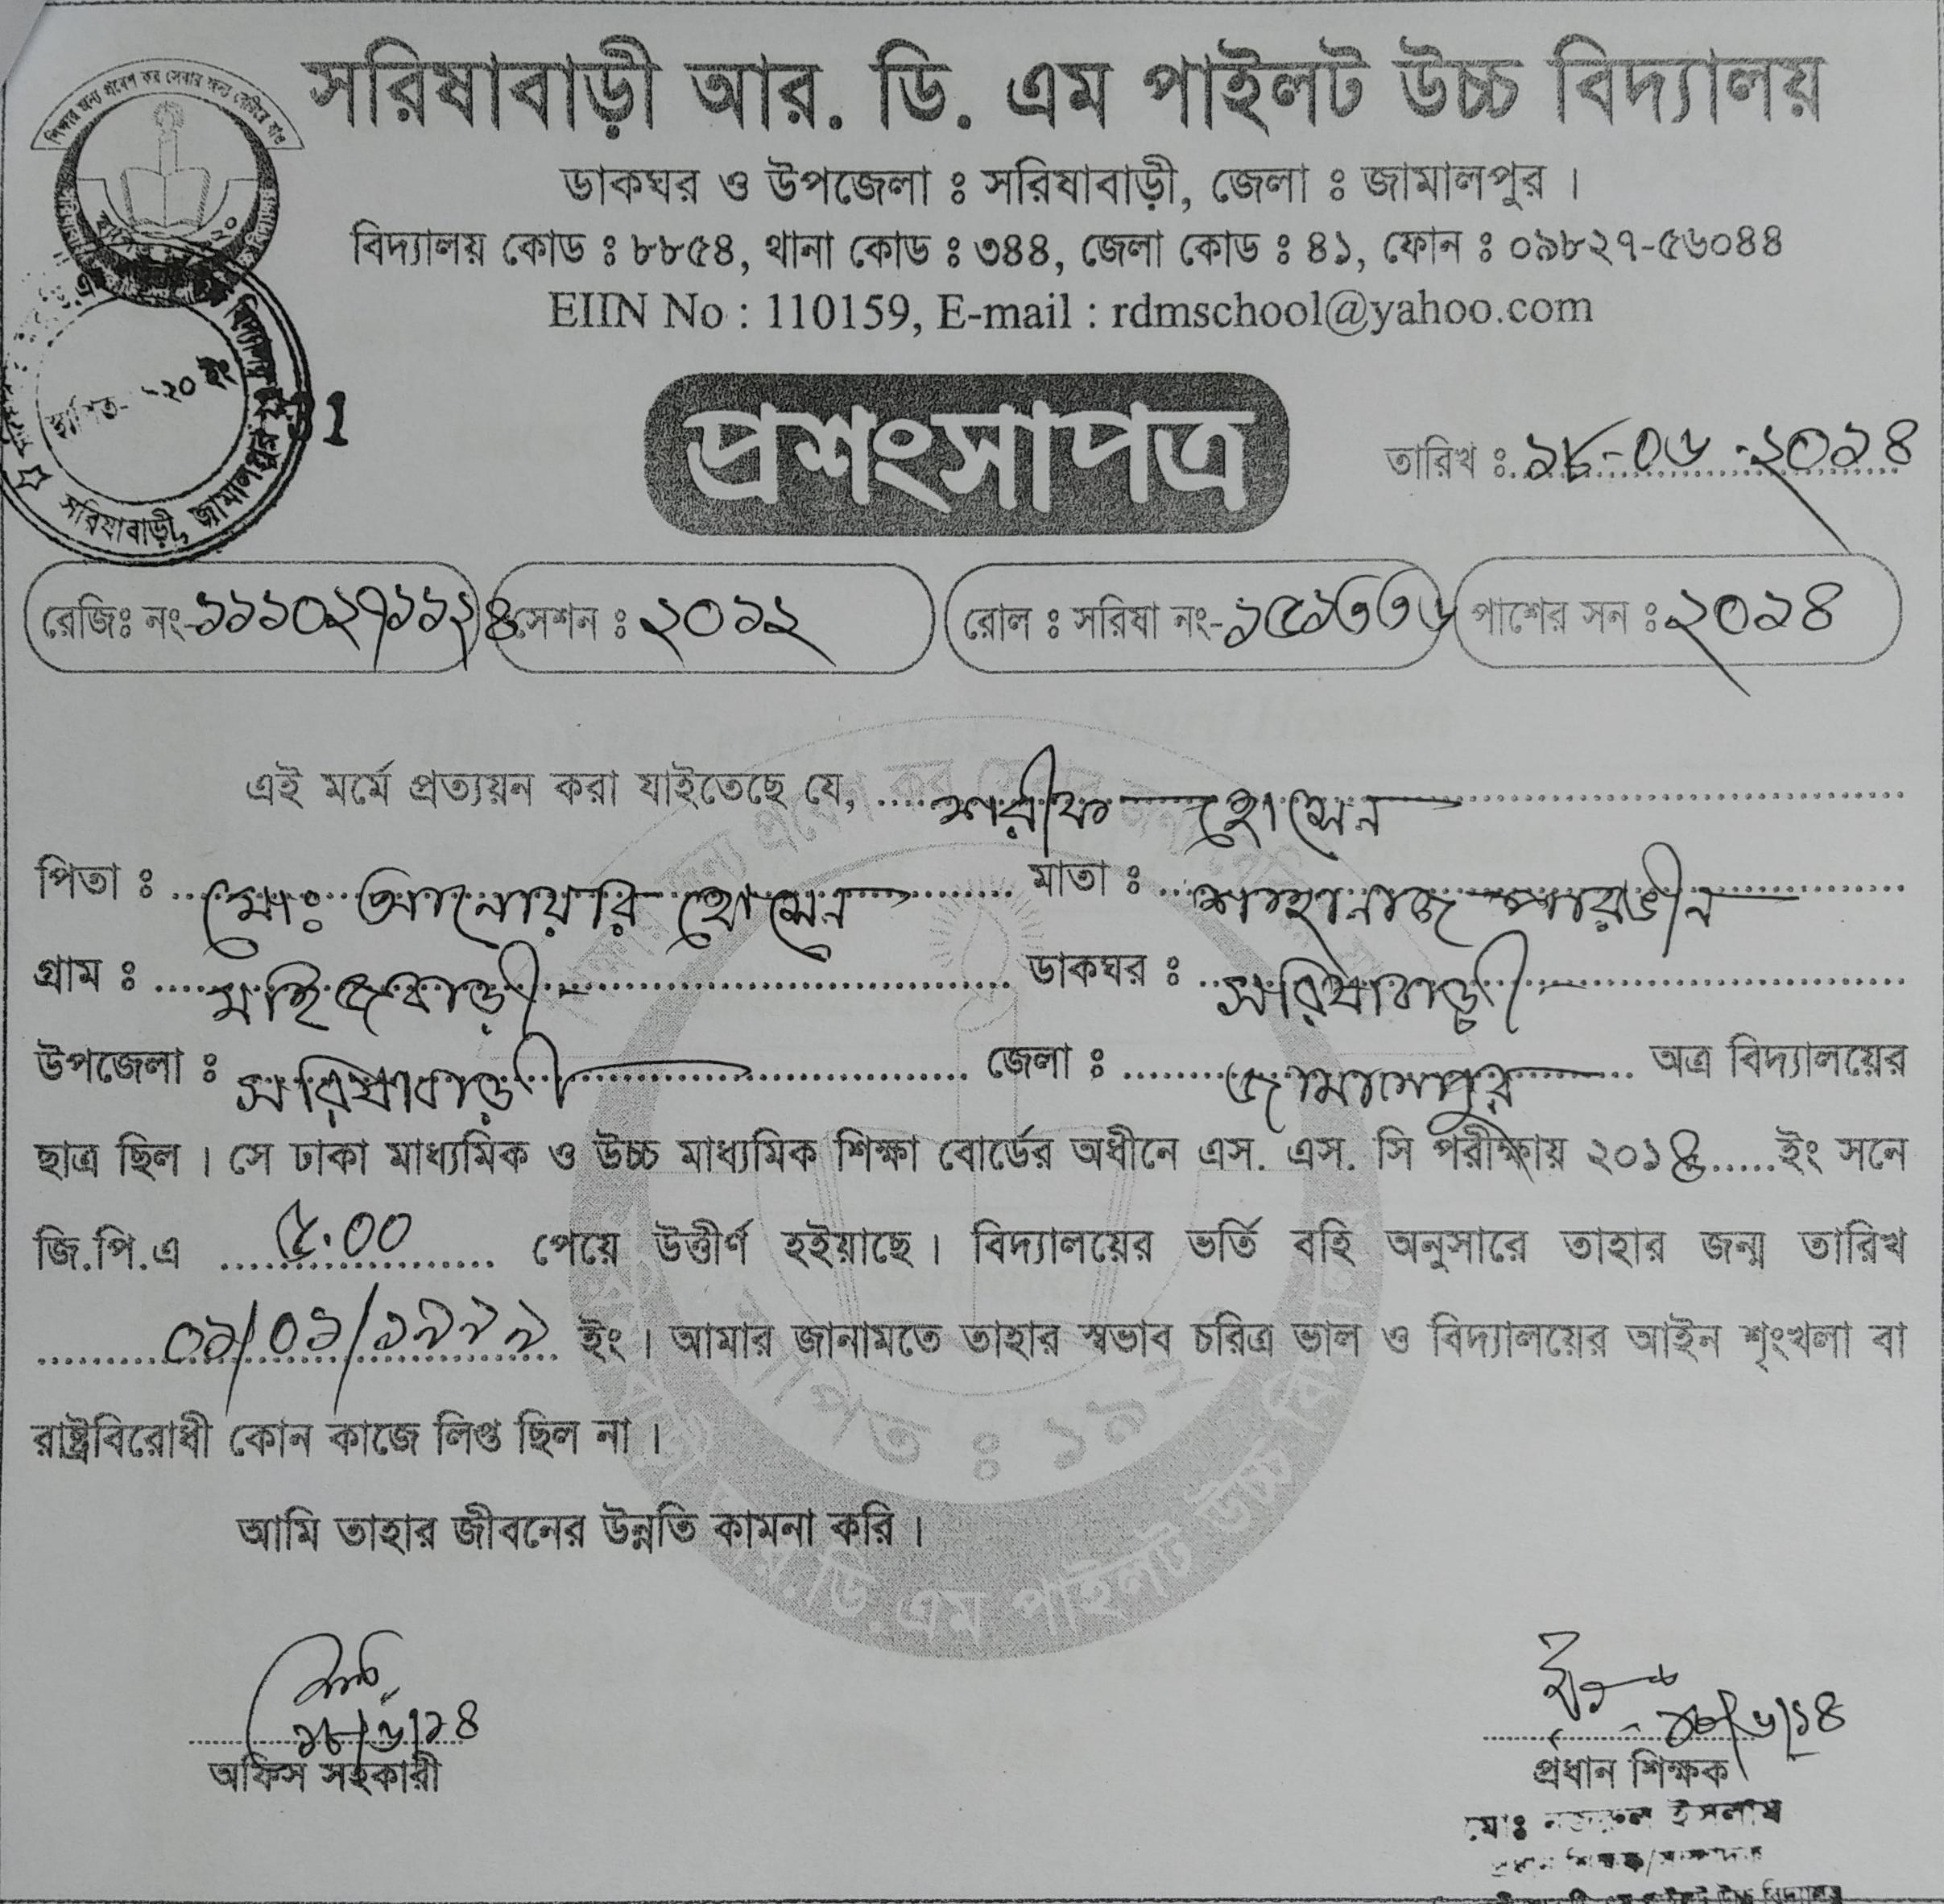 শিক্ষার জন্য প্রবেশ কর সেবার জন্য বেরিয়ে যাও
সরিষাবাড়ী আর. ডি. এম পাইলট উচ্চ বিদ্যালয়
ডাকঘর ও উপজেলা ঃ সরিষাবাড়ী, জেলা ঃ জামালপুর ।
বিদ্যালয় কোড ঃ ৮৮৫৪, থানা কোড ঃ ৩৪৪, জেলা কোড ঃ ৪১, ফোন ঃ ০৯৮২৭-৫৬০৪৪
EIIN No : 110159, E-mail : rdmschool@yahoo.com
প্রশংসাপত্র
তারিখ ঃ ১৮-০৬-২০১৪
সরিষাবাড়ী, জামালপুর
রেজিঃ নং-১১১০২৭১১২৪ সেশন ঃ ২০১২ রোল ঃ সরিষা নং-১৫১৩৩৬ পাশের সন ঃ ২০১৪
এই মর্মে প্রত্যয়ন করা যাইতেছে যে, শরীফ হোসেন
পিতা ঃ মোঃ আনোয়ার হোসেন মাতা ঃ শাহানাজ পারভীন
গ্রাম ঃ মাইজবাড়ী ডাকঘর ঃ সরিষাবাড়ী
উপজেলা ঃ সরিষাবাড়ী জেলা ঃ জামালপুর অত্র বিদ্যালয়ের
ছাত্র ছিল । সে ঢাকা মাধ্যমিক ও উচ্চ মাধ্যমিক শিক্ষা বোর্ডের অধীনে এস. এস. সি পরীক্ষায় ২০১৪ ইং সনে
জি.পি.এ ৫.০০ পেয়ে উত্তীর্ণ হইয়াছে । বিদ্যালয়ের ভর্তি বহি অনুসারে তাহার জন্ম তারিখ
০১/০১/১৯৯৯ ইং । আমার জানামতে তাহার স্বভাব চরিত্র ভাল ও বিদ্যালয়ের আইন শৃংখলা বা
রাষ্ট্রবিরোধী কোন কাজে লিপ্ত ছিল না ।
আমি তাহার জীবনের উন্নতি কামনা করি ।
১৮/৬/১৪ ১৮/৬/১৪
অফিস সহকারী প্রধান শিক্ষক
মোঃ নজরুল ইসলাম
প্রধান শিক্ষক